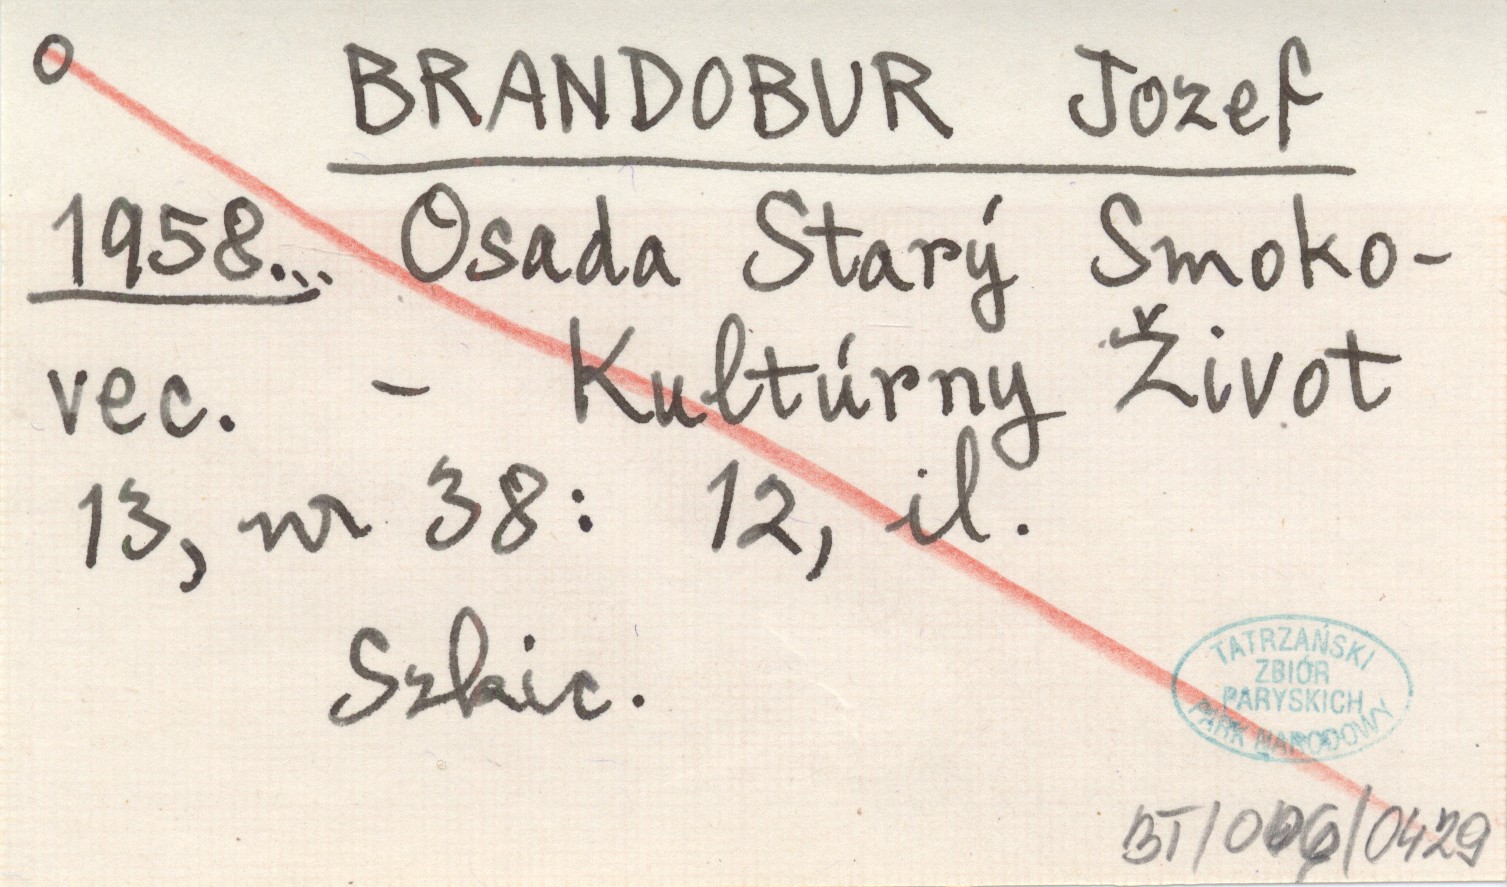 BRANDOBUR Jozef
1958... Osada Starý Smoko-
vec. - Kultúrny Život
13, nr 38: 12, il.
Szkic.
TATRZAŃSKI
ZBIÓR
PARYSKICH
PARK NARODOWY
BT/006/0429